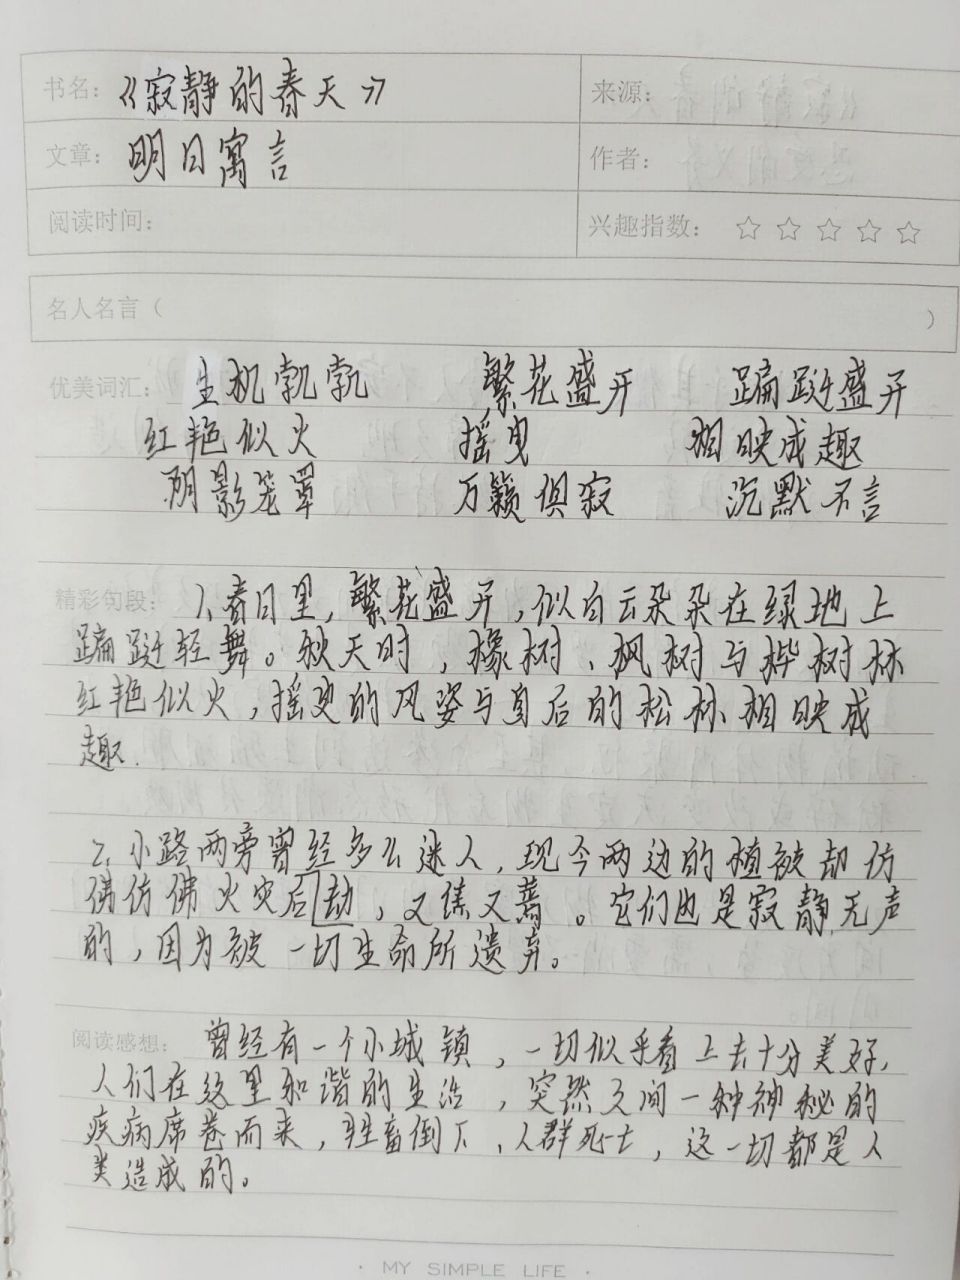 书名：《寂静的春天》 来源：
文章：明日寓言 作者：
阅读时间： 兴趣指数：☆☆☆☆☆
名人名言（ ）
优美词汇：生机勃勃 繁花盛开 蹁跹盛开
红艳似火 摇曳 相映成趣
阴影笼罩 万籁俱寂 沉默不言
精彩句段：1、春日里，繁花盛开，似白云朵朵在绿地上
蹁跹轻舞。秋天时，橡树、枫树与桦树林
红艳似火，摇曳的风姿与身后的松林相映成
趣.
2、小路两旁曾经多么迷人，现今两边的植被却仿
佛仿佛火灾后劫，又焦又蔫。它们也是寂静无声
的，因为被一切生命所遗弃。
阅读感想：曾经有一个小城镇，一切似乎看上去十分美好，
人们在这里和谐的生活，突然之间一种神秘的
疾病席卷而来，牲畜倒下、人群死亡，这一切都是人
类造成的。
· MY SIMPLE LIFE ·